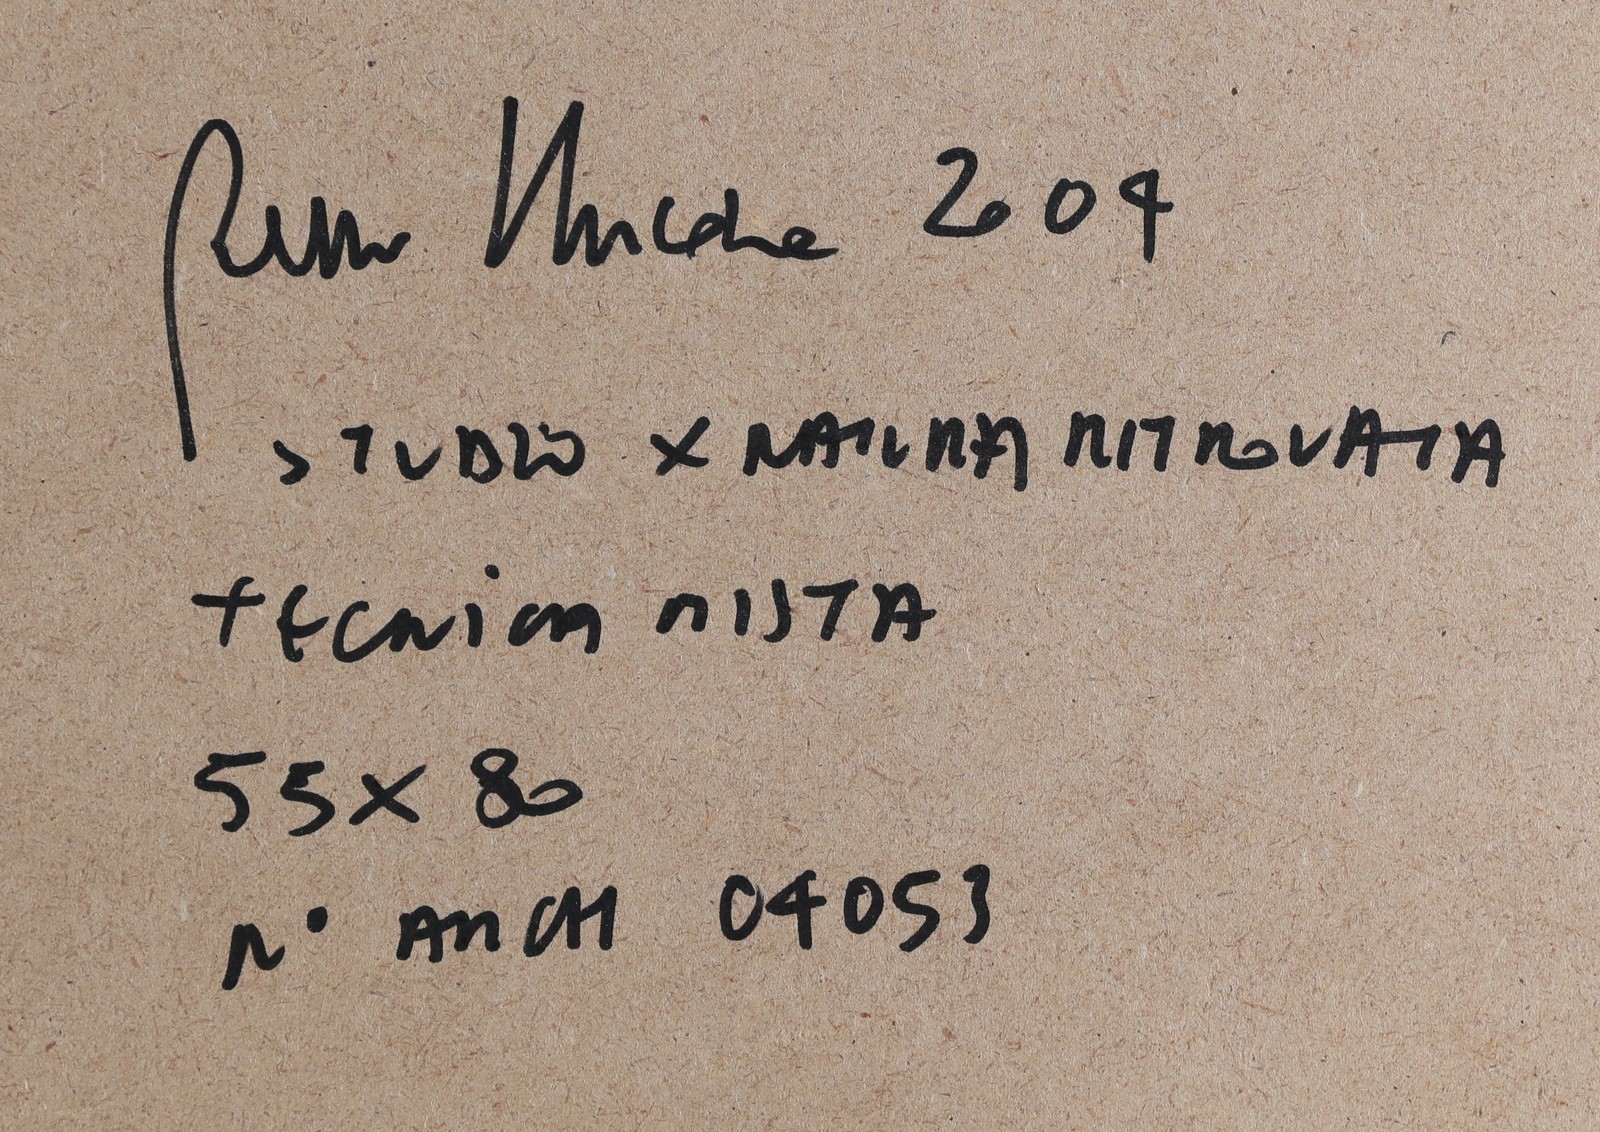 2004
STUDIO X NATURA RITROVATA
tECNiCA MISTA
55X80
N° ARCH 04053